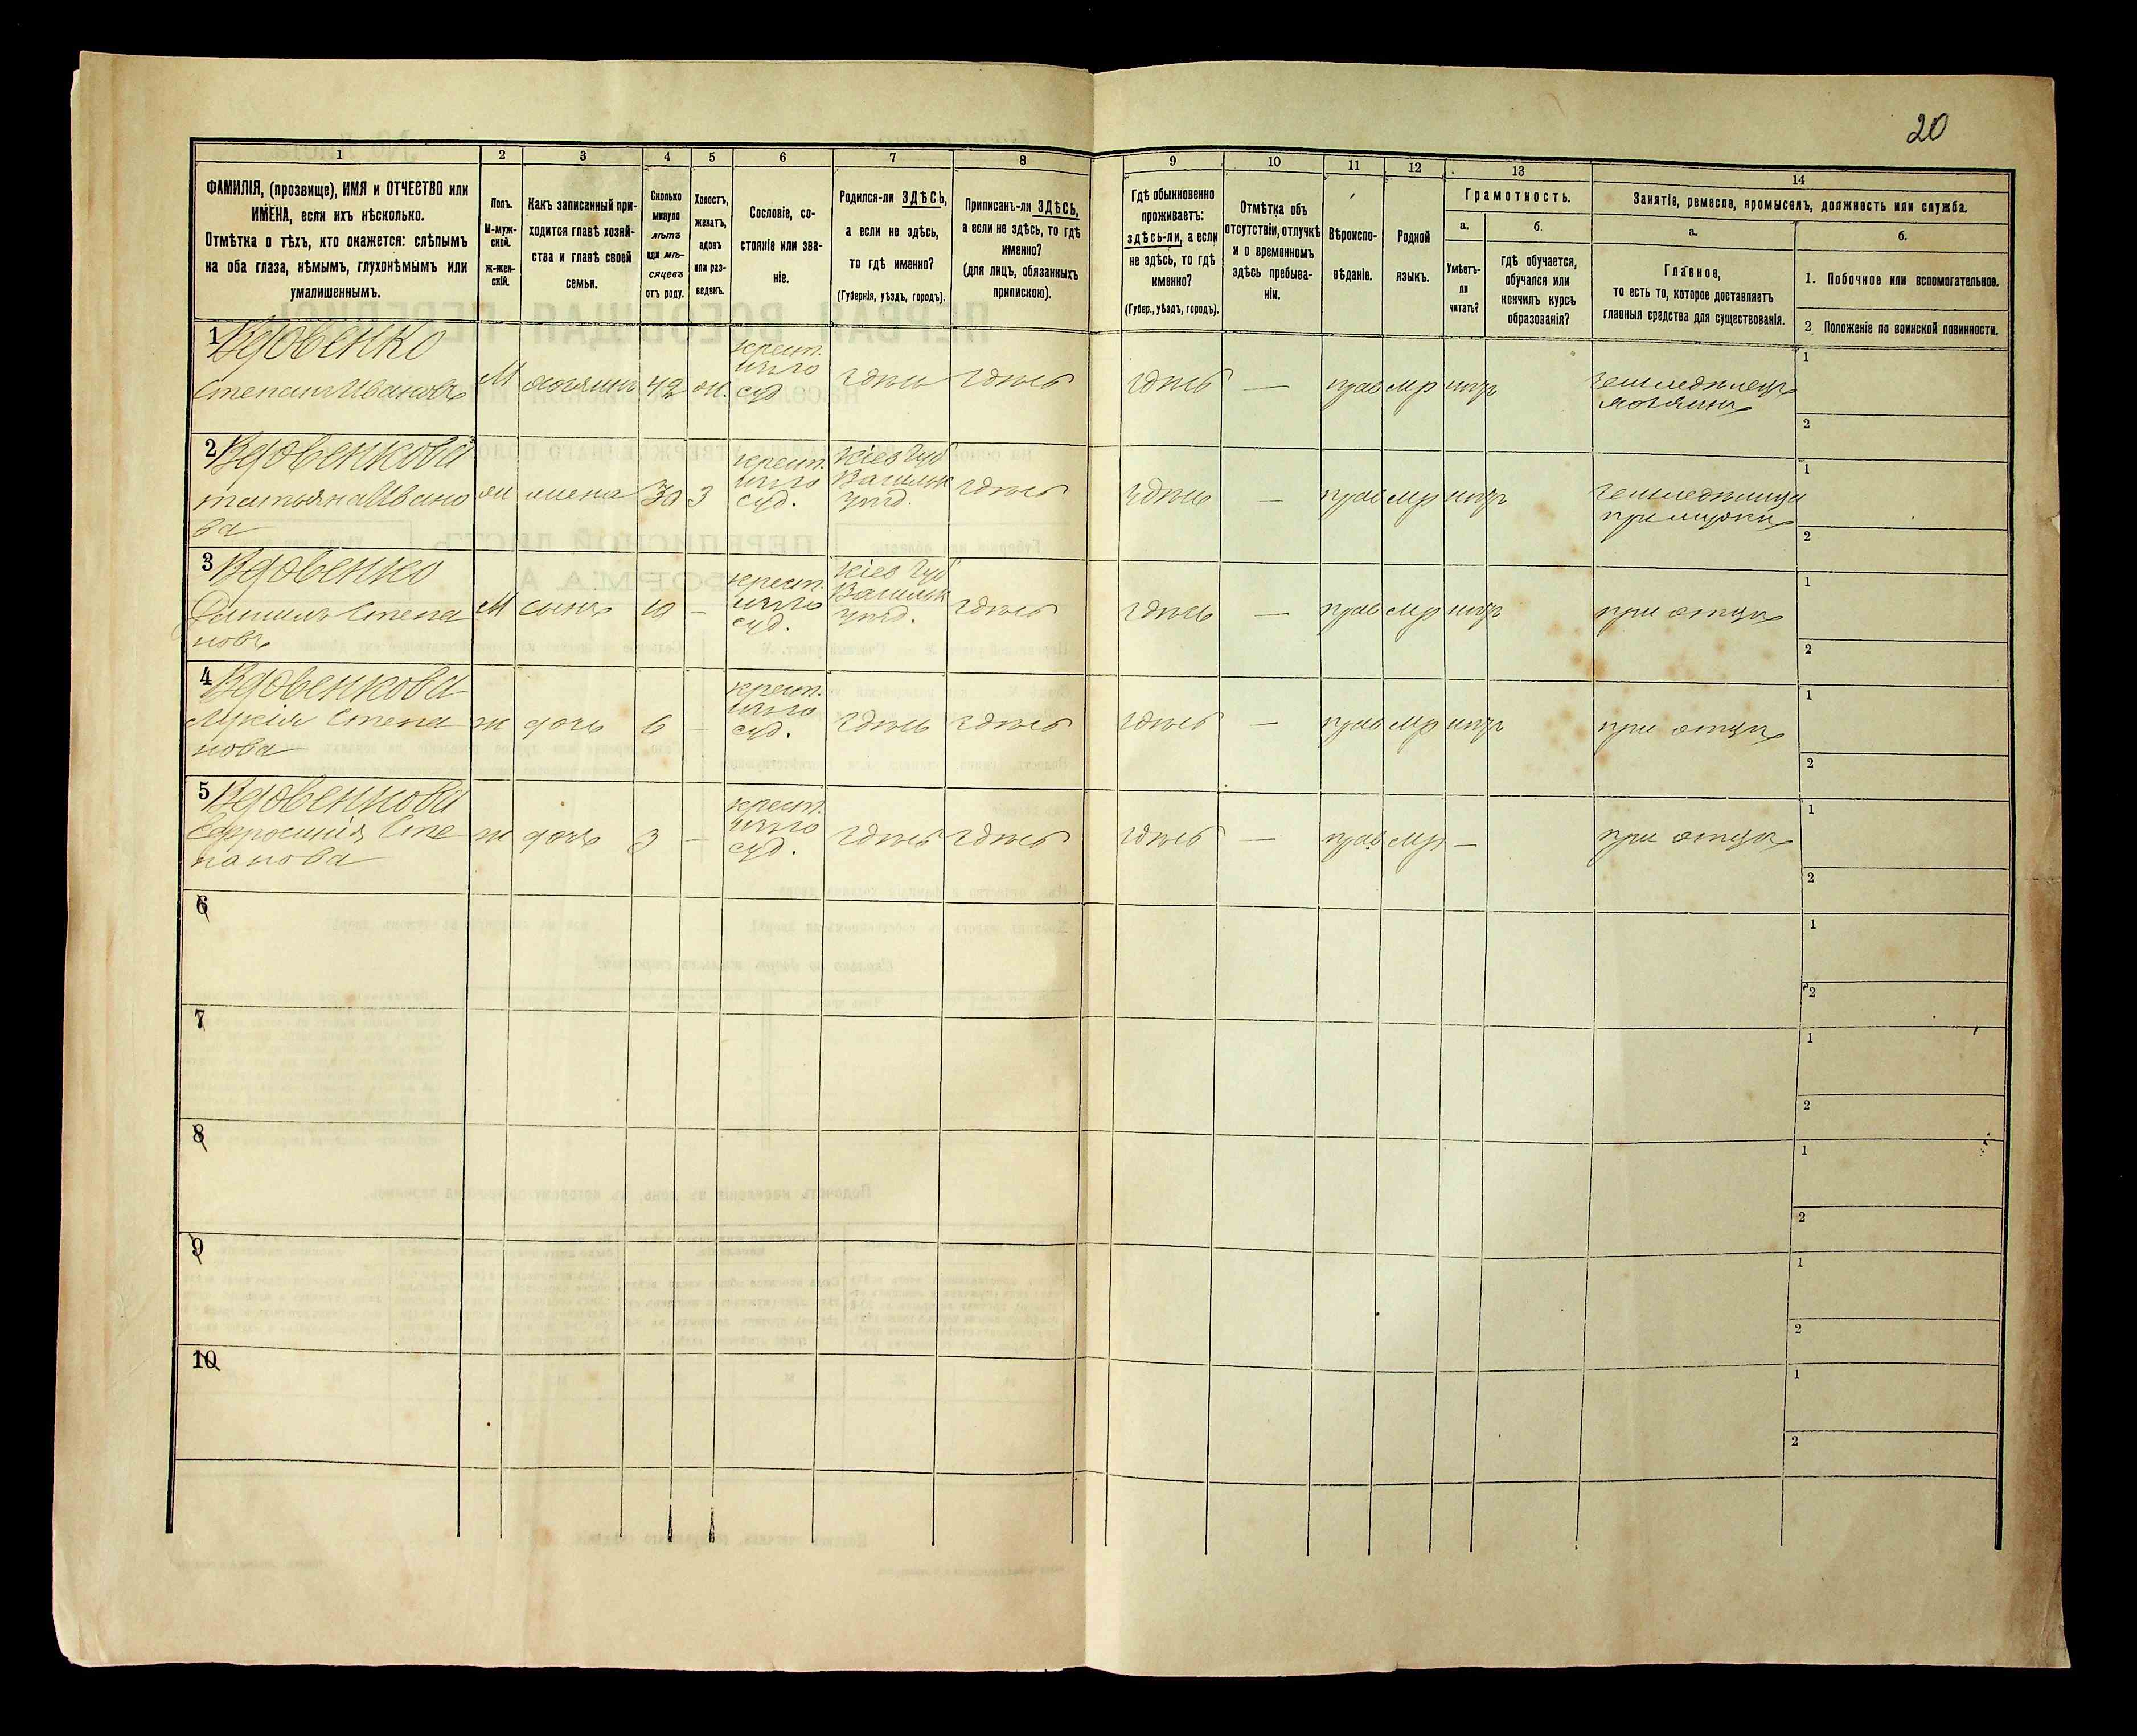 20
1 2 3 4 5 6 7 8 9 10 11 12 13 14
ФАМИЛІЯ, (прозвище), ИМЯ и ОТЧЕСТВО или
ИМЕНА, если ихъ нѣсколько.
Отмѣтка о тѣхъ, кто окажется: слѣпымъ
на оба глаза, нѣмымъ, глухонѣмымъ или
умалишеннымъ.
Полъ.
М-муж-
ской.
Ж-жен-
скій.
Какъ записанный при-
ходится главѣ хозяй-
ства и главѣ своей
семьи.
Сколько
минуло
лѣтъ
или мѣ-
сяцевъ
отъ роду.
Холостъ,
женатъ,
вдовъ
или раз-
веденъ.
Сословіе, со-
стояніе или зва-
ніе.
Родился-ли ЗДѢСЬ,
а если не здѣсь,
то гдѣ именно?
(Губернія, уѣздъ, городъ).
Приписанъ-ли ЗДѢСЬ,
а если не здѣсь, то гдѣ
именно?
(для лицъ, обязанныхъ
припискою).
Гдѣ обыкновенно
проживаетъ:
здѣсь-ли, а если
не здѣсь, то гдѣ
именно?
(Губер., уѣздъ, городъ).
Отмѣтка объ
отсутствіи, отлучкѣ
и о временномъ
здѣсь пребыва-
ніи.
Вѣроиспо-
вѣданіе.
Родной
языкъ.
Грамотность.
а.
Умѣетъ-
ли
читать?
б.
гдѣ обучается,
обучался или
кончилъ курсъ
образованія?
Занятіе, ремесло, промыселъ, должность или служба.
а.
Главное,
то есть то, которое доставляетъ
главныя средства для существованія.
б.
1. Побочное или вспомогательное.
2 Положеніе по воинской повинности.
1 Вдовенко
Степанъ Ивановъ М хозяинъ 42 ж. крест. суд здѣсь здѣсь здѣсь — прав мр нѣтъ земледѣлецъ
хозяинъ
1
2
2 Вдовенкова
татьяна Ивано
ва ж жена 30 3 крест. суд. Кіев Губ
Васильк
уѣзд. здѣсь здѣсь — прав мр нѣтъ земледѣлица
при мужѣ
1
2
3 Вдовенко
Степа
новъ М сынъ 10 — крест. суд. Кіев Губ
Васильк
уѣзд. здѣсь здѣсь — прав мр нѣтъ при отцѣ
1
2
4 Вдовенкова
Лукія Степа
нова ж дочь 6 — крест. суд. здѣсь здѣсь здѣсь — прав мр нѣтъ при отцѣ
1
2
5 Вдовенкова
Ефросинія Сте
панова ж дочь 3 — крест. суд. здѣсь здѣсь здѣсь — прав мр — при отцѣ
1
2
6
1
2
7
1
2
8
1
2
9
1
2
10
1
2